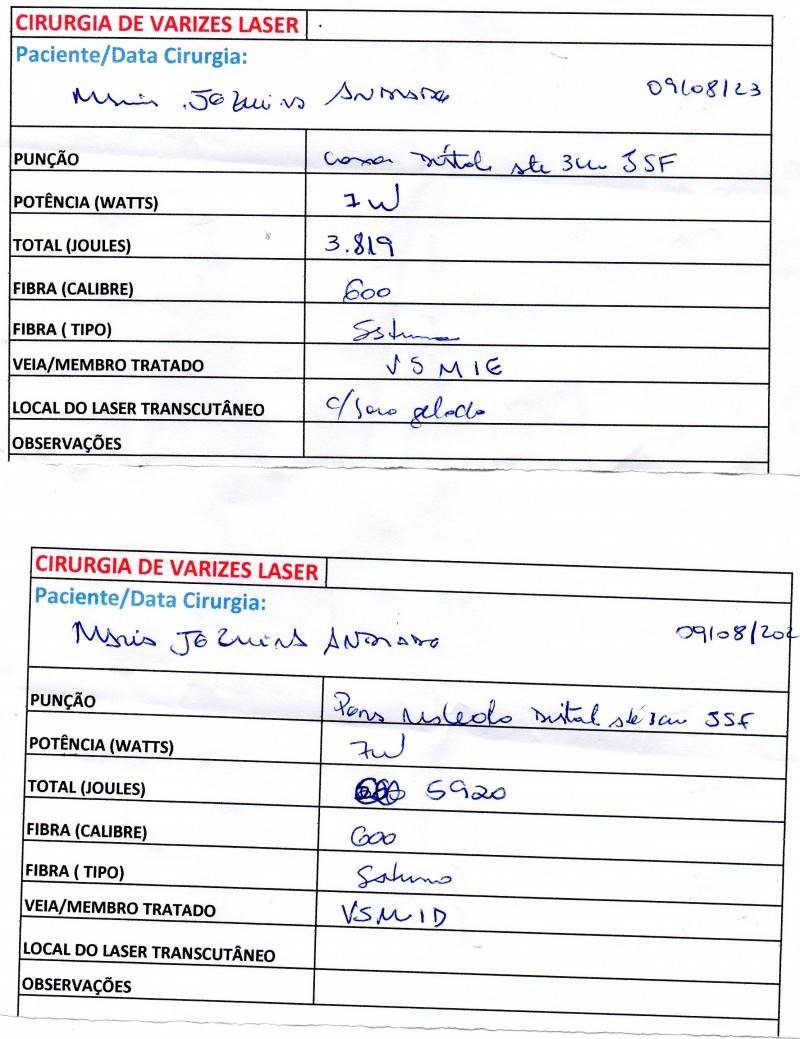 CIRURGIA DE VARIZES LASER
Paciente/Data Cirurgia:
Maria Joaquina Andrade 09/08/23
PUNÇÃO coxa distal até 3cm JSF
POTÊNCIA (WATTS) 7W
TOTAL (JOULES) 3.819
FIBRA (CALIBRE) 600
FIBRA ( TIPO) Saturno
VEIA/MEMBRO TRATADO VSMIE
LOCAL DO LASER TRANSCUTÂNEO c/ soro gelado
OBSERVAÇÕES
CIRURGIA DE VARIZES LASER
Paciente/Data Cirurgia:
Maria Joaquina Andrade 09/08/202
PUNÇÃO Perna distal até 3cm JSF
POTÊNCIA (WATTS) 7W
TOTAL (JOULES) 5920
FIBRA (CALIBRE) 600
FIBRA ( TIPO) Saturno
VEIA/MEMBRO TRATADO VSMID
LOCAL DO LASER TRANSCUTÂNEO
OBSERVAÇÕES